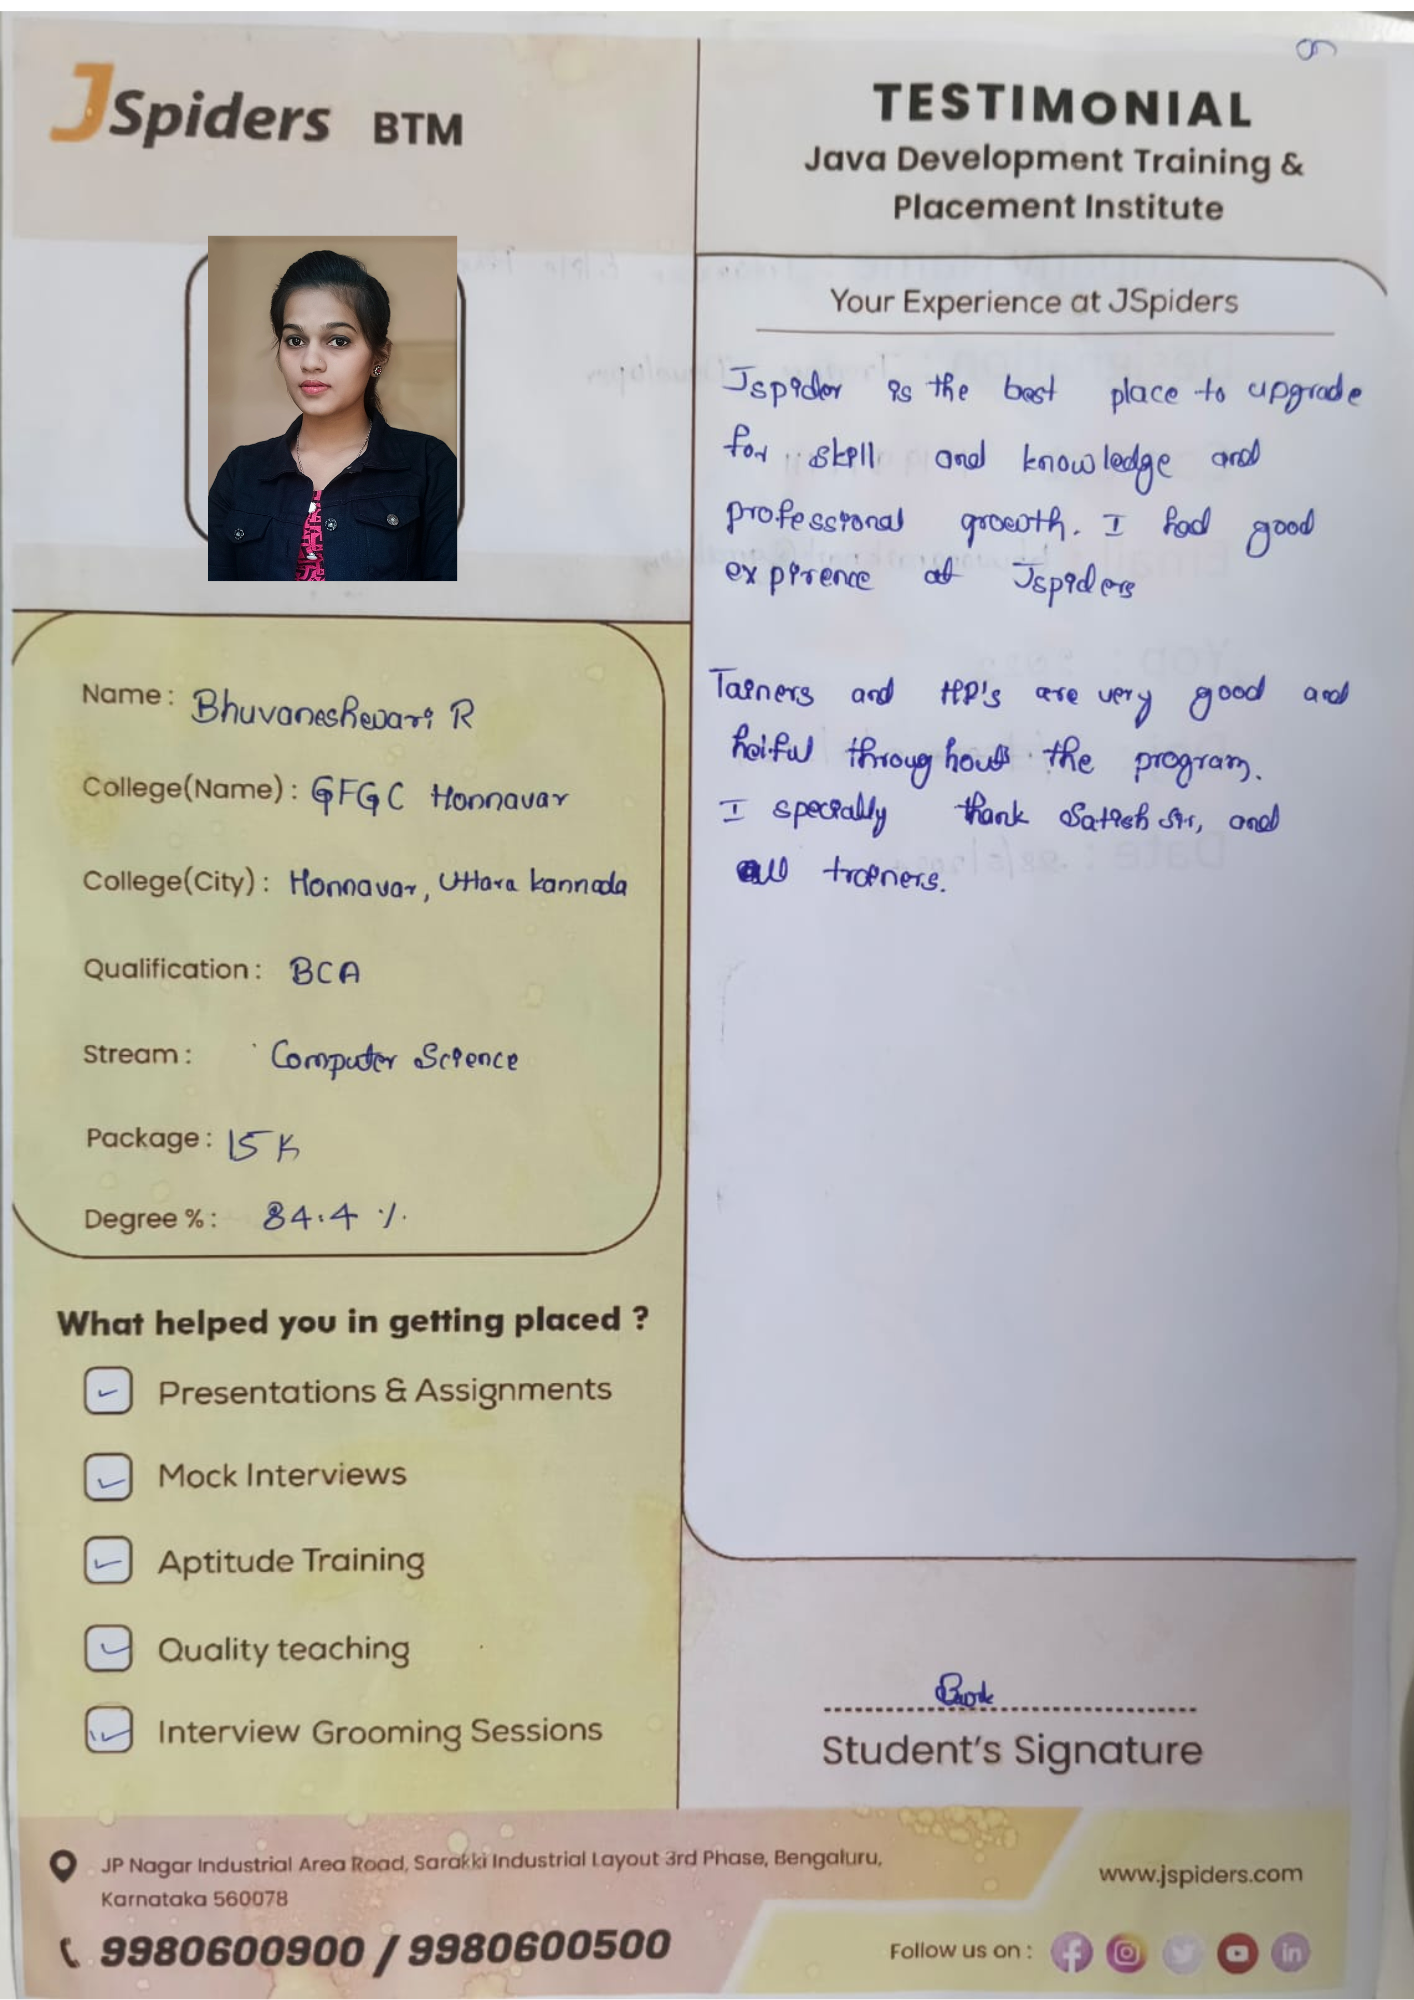 JSpiders BTM
TESTIMONIAL
Java Development Training &
Placement Institute
Your Experience at JSpiders
Jspider is the best place to upgrade
for skill and knowledge and
professional growth. I had good
expirence at Jspiders
Tainers and HP's are very good and
helful throughout the program.
I specially thank Satish Sir, and
all trainers.
Name : Bhuvaneshwari R
College(Name) : GFGC Honnavar
College(City) : Honnavar, Uttara kannada
Qualification : BCA
Stream : Computer Science
Package : 15 K
Degree % : 84.4 %
What helped you in getting placed ?
Presentations & Assignments
Mock Interviews
Aptitude Training
Quality teaching
Interview Grooming Sessions
Student's Signature
JP Nagar Industrial Area Road, Sarakki Industrial Layout 3rd Phase, Bengaluru,
Karnataka 560078
9980600900 / 9980600500
www.jspiders.com
Follow us on :